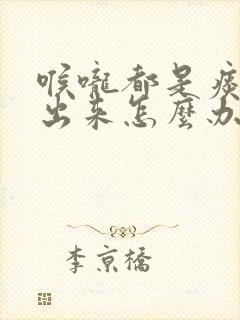 喉嚨都是痰
出來怎麼办
李京橋